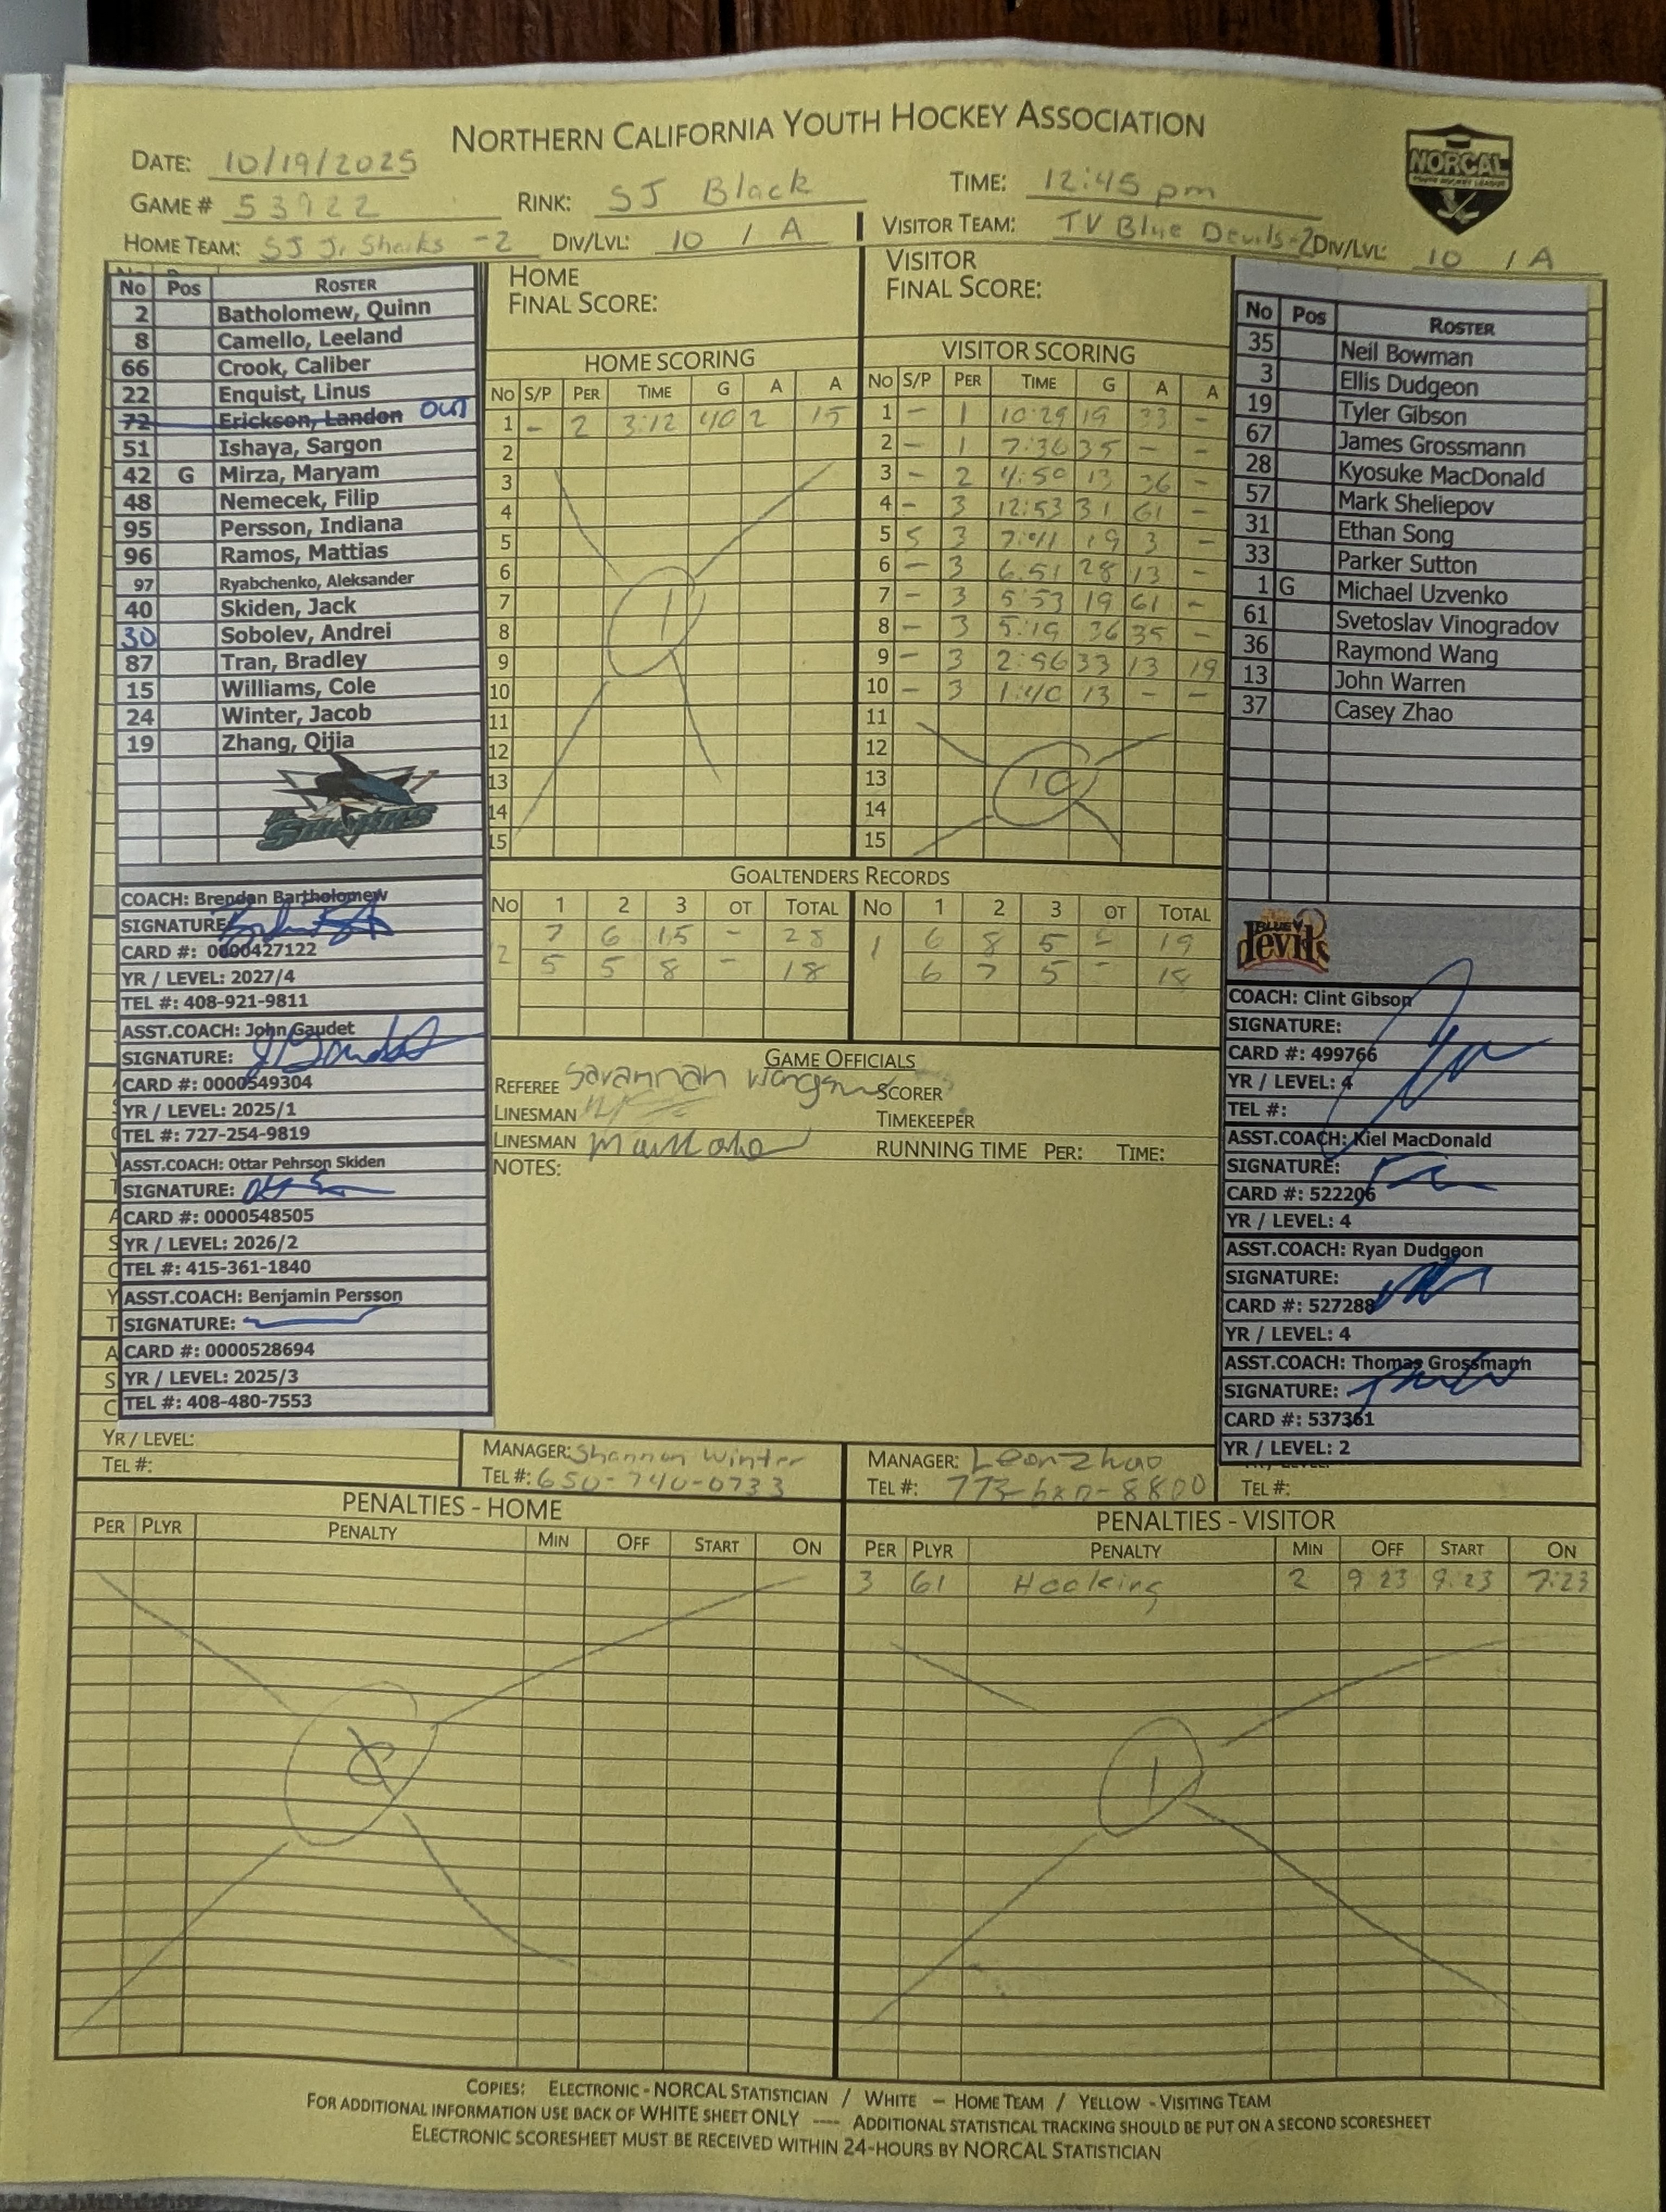 NORTHERN CALIFORNIA YOUTH HOCKEY ASSOCIATION
NORCAL
DATE: 10/19/2025
GAME # 53922 RINK: SJ Black TIME: 12:45 pm
HOME TEAM: SJ Jr Sharks -2 DIV/LVL: 10 / A VISITOR TEAM: TV Blue Devils-2 DIV/LVL: 10 / A
No Pos ROSTER
2 Batholomew, Quinn
8 Camello, Leeland
66 Crook, Caliber
22 Enquist, Linus
72 Erickson, Landon OUT
51 Ishaya, Sargon
42 G Mirza, Maryam
48 Nemecek, Filip
95 Persson, Indiana
96 Ramos, Mattias
97 Ryabchenko, Aleksander
40 Skiden, Jack
30 Sobolev, Andrei
87 Tran, Bradley
15 Williams, Cole
24 Winter, Jacob
19 Zhang, Qijia
SHARKS
COACH: Brendan Bartholomew
SIGNATURE:
CARD #: 0000427122
YR / LEVEL: 2027/4
TEL #: 408-921-9811
ASST.COACH: John Gaudet
SIGNATURE:
CARD #: 0000549304
YR / LEVEL: 2025/1
TEL #: 727-254-9819
ASST.COACH: Ottar Pehrson Skiden
SIGNATURE:
CARD #: 0000548505
YR / LEVEL: 2026/2
TEL #: 415-361-1840
ASST.COACH: Benjamin Persson
SIGNATURE:
CARD #: 0000528694
YR / LEVEL: 2025/3
TEL #: 408-480-7553
YR / LEVEL:
TEL #:
HOME
FINAL SCORE:
HOME SCORING
No S/P PER TIME G A A
1 - 2 3:12 40 2 15
2
3
4
5
6
7
8
9
10
11
12
13
14
15
1
VISITOR
FINAL SCORE:
VISITOR SCORING
No S/P PER TIME G A A
1 - 1 10:29 19 33 -
2 - 1 7:36 35 - -
3 - 2 4:50 13 36 -
4 - 3 12:53 31 61 -
5 S 3 7:41 19 3 -
6 - 3 6:51 28 13 -
7 - 3 5:53 19 61 -
8 - 3 5:19 36 35 -
9 - 3 2:56 33 13 19
10 - 3 1:40 13 - -
11
12
13
14
15
10
GOALTENDERS RECORDS
No 1 2 3 OT TOTAL No 1 2 3 OT TOTAL
7 6 15 - 28 6 8 5 - 19
2 5 5 8 - 18 1 6 7 5 - 18
GAME OFFICIALS
REFEREE Savannah SCORER
LINESMAN TIMEKEEPER
LINESMAN RUNNING TIME PER: TIME:
NOTES:
No Pos ROSTER
35 Neil Bowman
3 Ellis Dudgeon
19 Tyler Gibson
67 James Grossmann
28 Kyosuke MacDonald
57 Mark Sheliepov
31 Ethan Song
33 Parker Sutton
1 G Michael Uzvenko
61 Svetoslav Vinogradov
36 Raymond Wang
13 John Warren
37 Casey Zhao
BLUE devils
COACH: Clint Gibson
SIGNATURE:
CARD #: 499766
YR / LEVEL: 4
TEL #:
ASST.COACH: Kiel MacDonald
SIGNATURE:
CARD #: 522206
YR / LEVEL: 4
ASST.COACH: Ryan Dudgeon
SIGNATURE:
CARD #: 527288
YR / LEVEL: 4
ASST.COACH: Thomas Grossmann
SIGNATURE:
CARD #: 537361
YR / LEVEL: 2
TEL #:
MANAGER: Shannon Winter
TEL #: 650-740-0733
MANAGER: Leon Zhao
TEL #:
PENALTIES - HOME
PER PLYR PENALTY MIN OFF START ON
PENALTIES - VISITOR
PER PLYR PENALTY MIN OFF START ON
3 61 Hooking 2 9:23 9:23 7:23
1
COPIES: ELECTRONIC - NORCAL STATISTICIAN / WHITE – HOME TEAM / YELLOW - VISITING TEAM
FOR ADDITIONAL INFORMATION USE BACK OF WHITE SHEET ONLY ---- ADDITIONAL STATISTICAL TRACKING SHOULD BE PUT ON A SECOND SCORESHEET
ELECTRONIC SCORESHEET MUST BE RECEIVED WITHIN 24-HOURS BY NORCAL STATISTICIAN